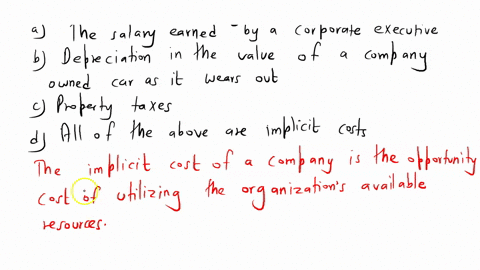 a) The salary earned by a corporate executive
b) Depreciation in the value of a company
owned car as it wears out
c) Property taxes
d) All of the above are implicit costs
The implicit cost of a company is the opportunity
cost of utilizing the organization's available
resources.